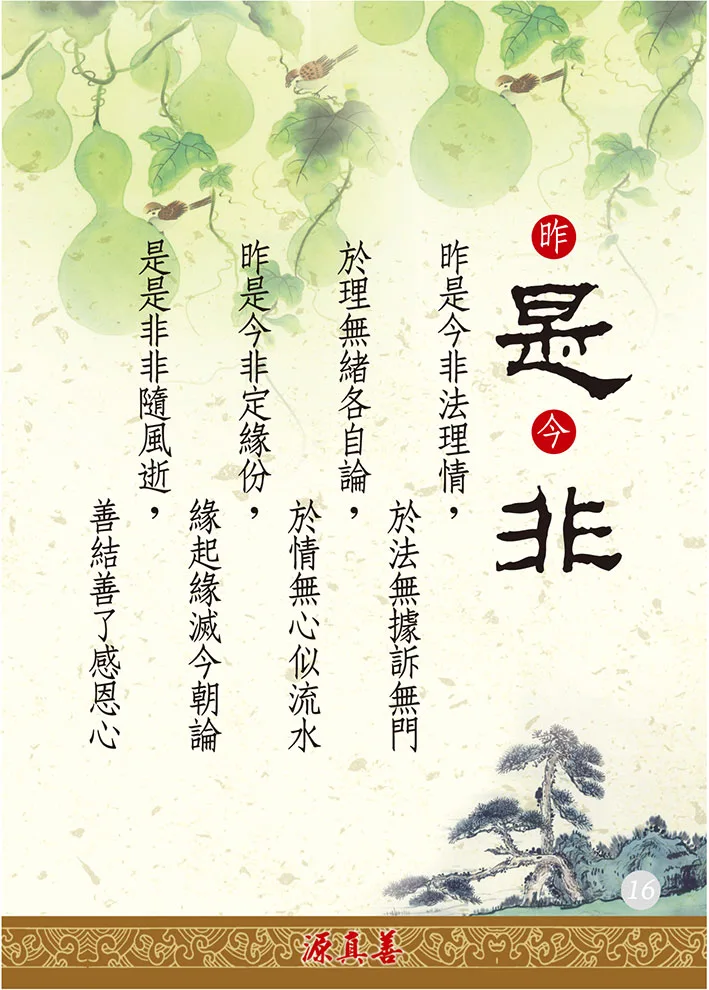 昨是今非
昨是今非法理情，
於法無據訴無門
於理無緒各自論，
於情無心似流水
昨是今非定緣份，
緣起緣滅今朝論
是是非非隨風逝，
善結善了感恩心
16
源真善